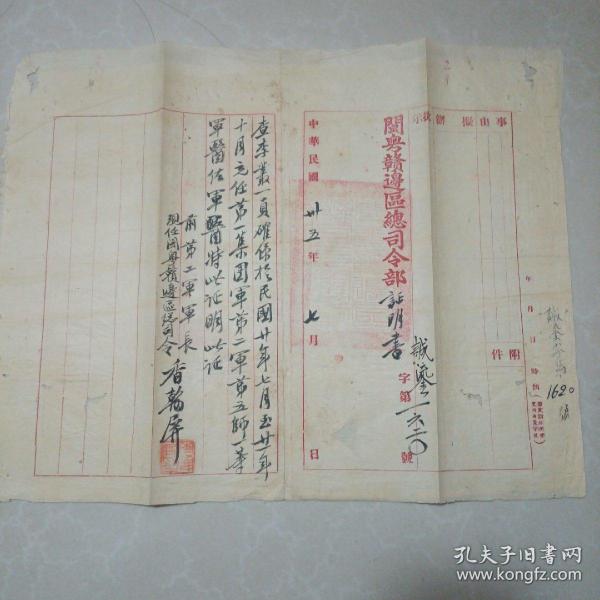 事由
擬辦
批示
附件
年 月 日 時
1620
號
閩粵贛邊區總司令部 証明書
誠鎏 字第一六二〇號
中華民國 卅五 年 七 月 日
查李叢一員確係於民國廿年七月至廿一年
十月充任第一集團軍第二軍第五師一等
軍醫佐軍醫特此証明此証
前第二軍軍長
現任閩粵贛邊區總司令 香翰屏
孔夫子旧书网
www.kongfz.com